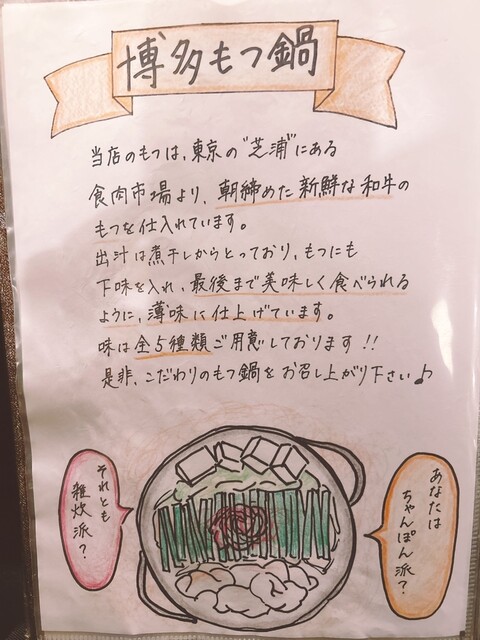 博多もつ鍋
当店のもつは、東京の"芝浦"にある
食肉市場より、朝締めた新鮮な和牛の
もつを仕入れています。
出汁は煮干しからとっており、もつにも
下味を入れ、最後まで美味しく食べられる
ように、薄味に仕上げています。
味は全5種類ご用意しております!!
是非、こだわりのもつ鍋をお召し上がり下さい♪
あなたは
ちゃんぽん派?
それとも
雑炊派?